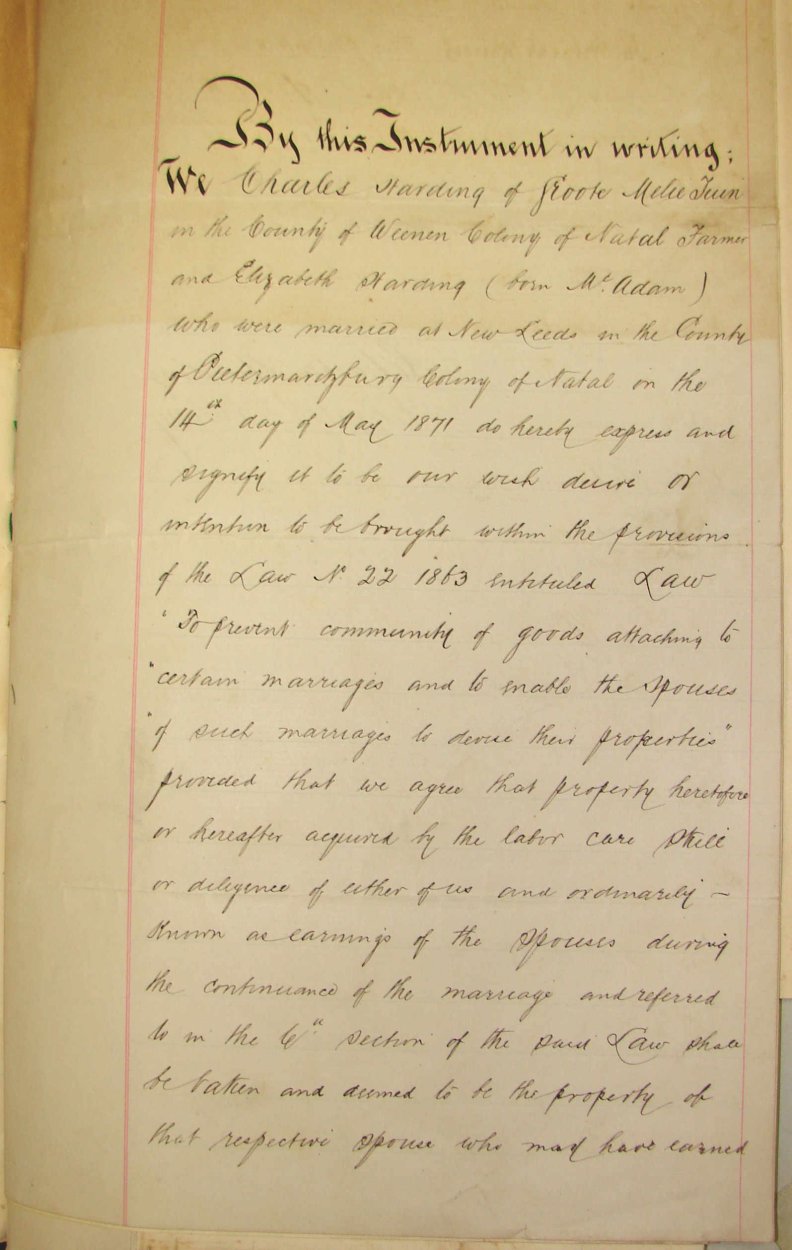 By this Instrument in writing;
We Charles Harding of Groote Melie Tuin
in the County of Weenen Colony of Natal Farmer
and Elizabeth Harding (born Mc. Adam)
who were married at New Leeds in the County
of Pietermaritzburg Colony of Natal on the
14th day of May 1871 do hereby express and
signify it to be our wish desire or
intention to be brought within the provisions
of the Law No 22 1863 entituled Law
"To prevent community of goods attaching to
"certain marriages and to enable the Spouses
"of such marriages to devise their properties"
provided that we agree that property heretofore
or hereafter acquired by the labor care skill
or diligence of either of us and ordinarily –
known as earnings of the Spouses during
the continuance of the marriage and referred
to in the 6th section of the said Law shall
be taken and deemed to be the property of
that respective spouse who may have earned